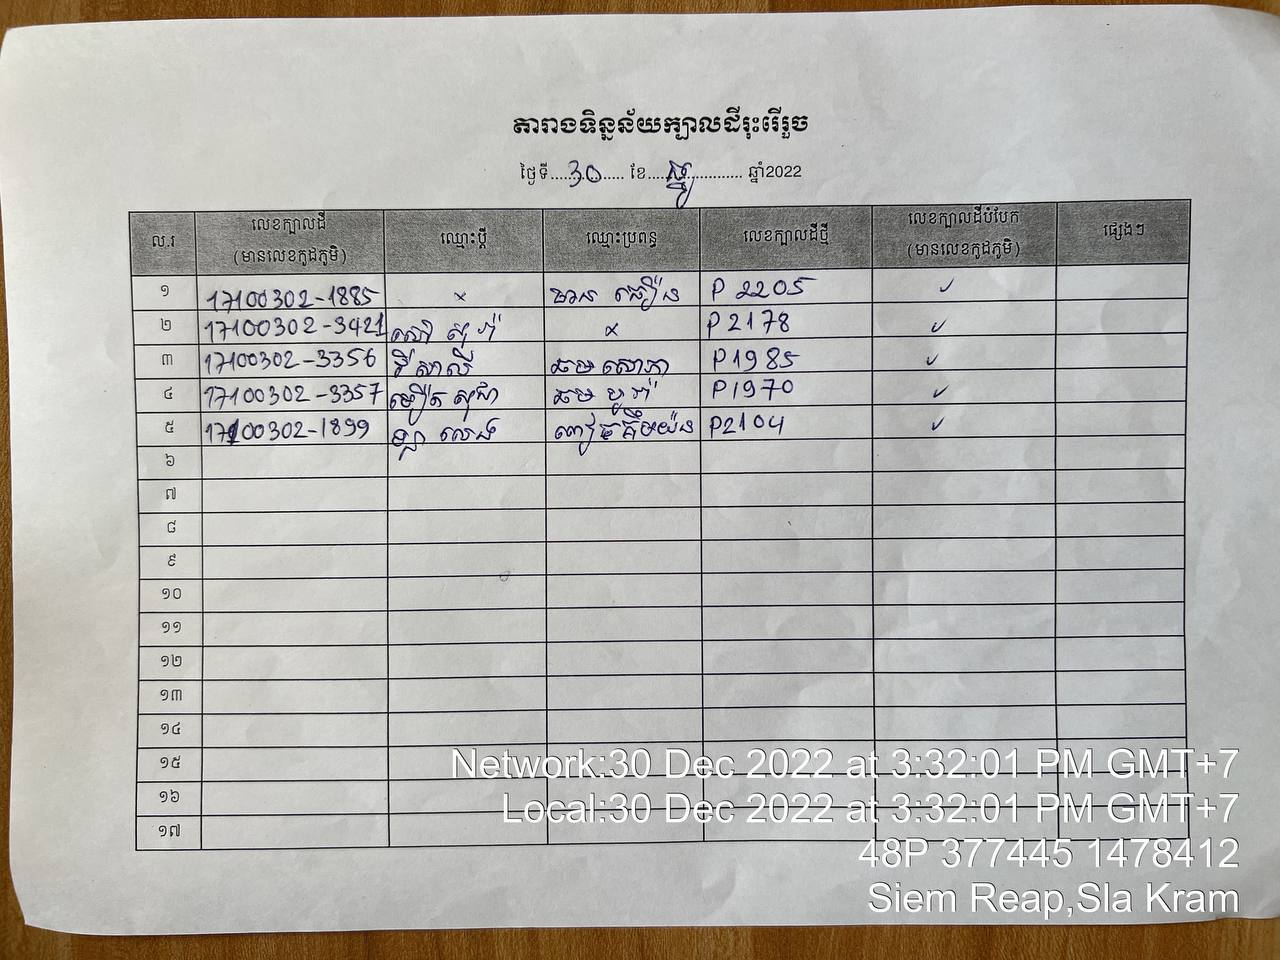 តារាងទិន្នន័យក្បាលដីរុះរើរួច
ថ្ងៃទី....30..... ខែ....ធ្នូ............ ឆ្នាំ2022
ល.រ លេខក្បាលដី (មានលេខកូដភូមិ) ឈ្មោះប្ដី ឈ្មោះប្រពន្ធ លេខក្បាលដីថ្មី លេខក្បាលដីបំបែក (មានលេខកូដភូមិ) ផ្សេងៗ
១ 17100302-1885 × មាន P 2205 ✓
២ 17100302-3421 × P2178 ✓
៣ 17100302-3356 វី សាលី ឆម សោភា P1985 ✓
៤ 17100302-3357 ឆម បូរ៉ា P1970 ✓
៥ 17100302-1899 P2104 ✓
៦
៧
៨
៩
១០
១១
១២
១៣
១៤
១៥
១៦
១៧
Network:30 Dec 2022 at 3:32:01 PM GMT+7
Local:30 Dec 2022 at 3:32:01 PM GMT+7
48P 377445 1478412
Siem Reap,Sla Kram